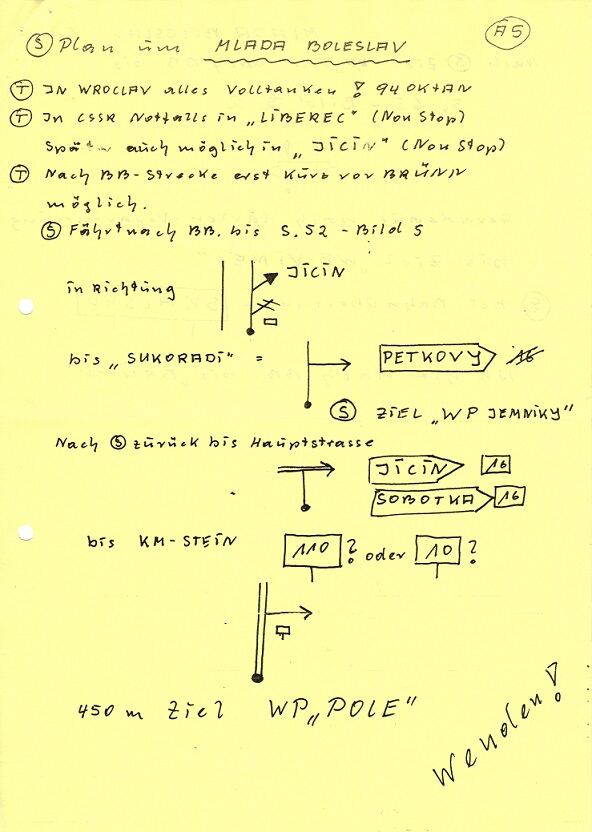 Ⓢ Plan um MLADA BOLESLAV
A5
Ⓣ IN WROCLAV alles Volltanken! 94 OKTAN
Ⓣ In CSSR Notfalls in „LIBEREC" (Non Stop)
Später auch möglich in „JICIN" (Non Stop)
Ⓣ Nach BB-Strecke erst Kurz vor BRÜNN
möglich.
Ⓢ Fährt nach BB. bis S.52 - Bild 5
in Richtung
JICIN
bis „SUKORADI" =
PETKOVY 16
Ⓢ ZIEL „WP JEMNIKY"
Nach Ⓢ zurück bis Hauptstrasse
JICIN 16
SOBOTKA 16
bis KM-STEIN 110? oder 10?
450 m Ziel WP „POLE"
Wenden!